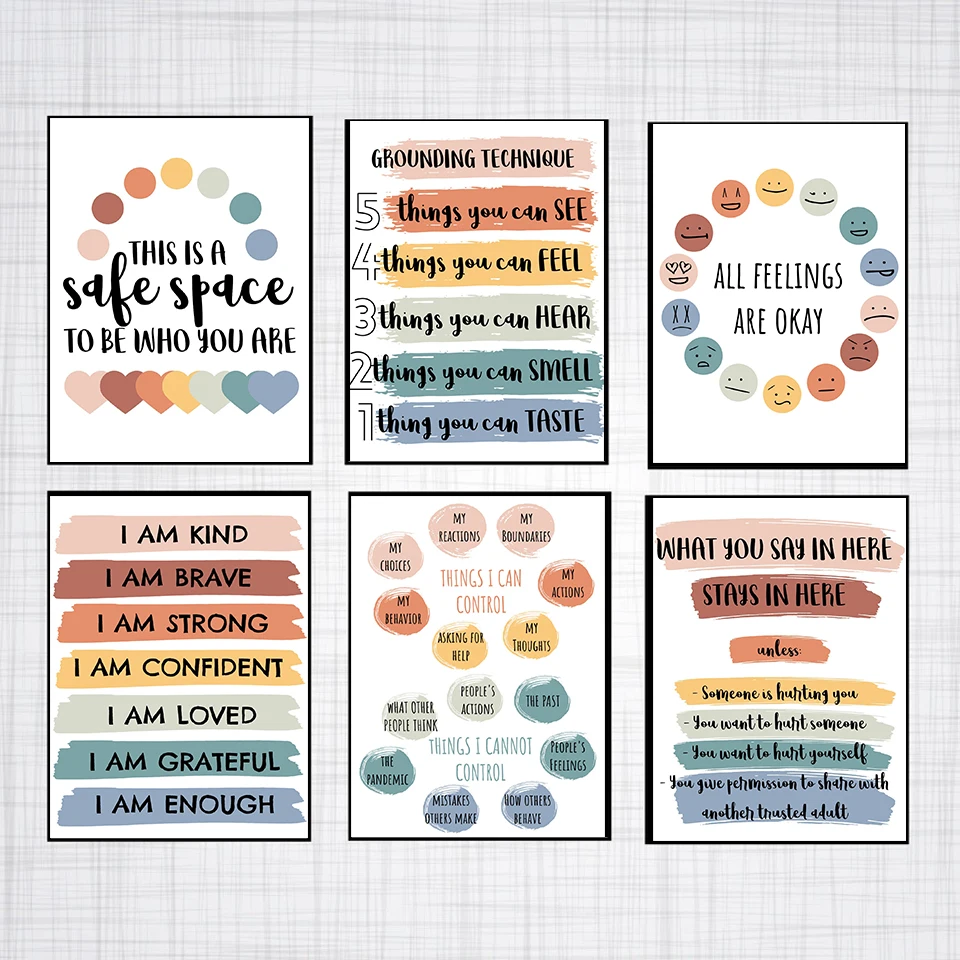 THIS IS A
safe space
TO BE WHO YOU ARE
GROUNDING TECHNIQUE
5 things you can SEE
4 things you can FEEL
3 things you can HEAR
2 things you can SMELL
1 thing you can TASTE
ALL FEELINGS
ARE OKAY
I AM KIND
I AM BRAVE
I AM STRONG
I AM CONFIDENT
I AM LOVED
I AM GRATEFUL
I AM ENOUGH
MY
REACTIONS
MY
BOUNDARIES
MY
CHOICES
THINGS I CAN
CONTROL
MY
ACTIONS
MY
BEHAVIOR
ASKING FOR
HELP
MY
THOUGHTS
WHAT OTHER
PEOPLE THINK
PEOPLE'S
ACTIONS
THE PAST
THINGS I CANNOT
CONTROL
THE
PANDEMIC
PEOPLE'S
FEELINGS
MISTAKES
OTHERS MAKE
HOW OTHERS
BEHAVE
WHAT YOU SAY IN HERE
STAYS IN HERE
unless:
- Someone is hurting you
- You want to hurt someone
- You want to hurt yourself
- You give permission to share with
another trusted adult